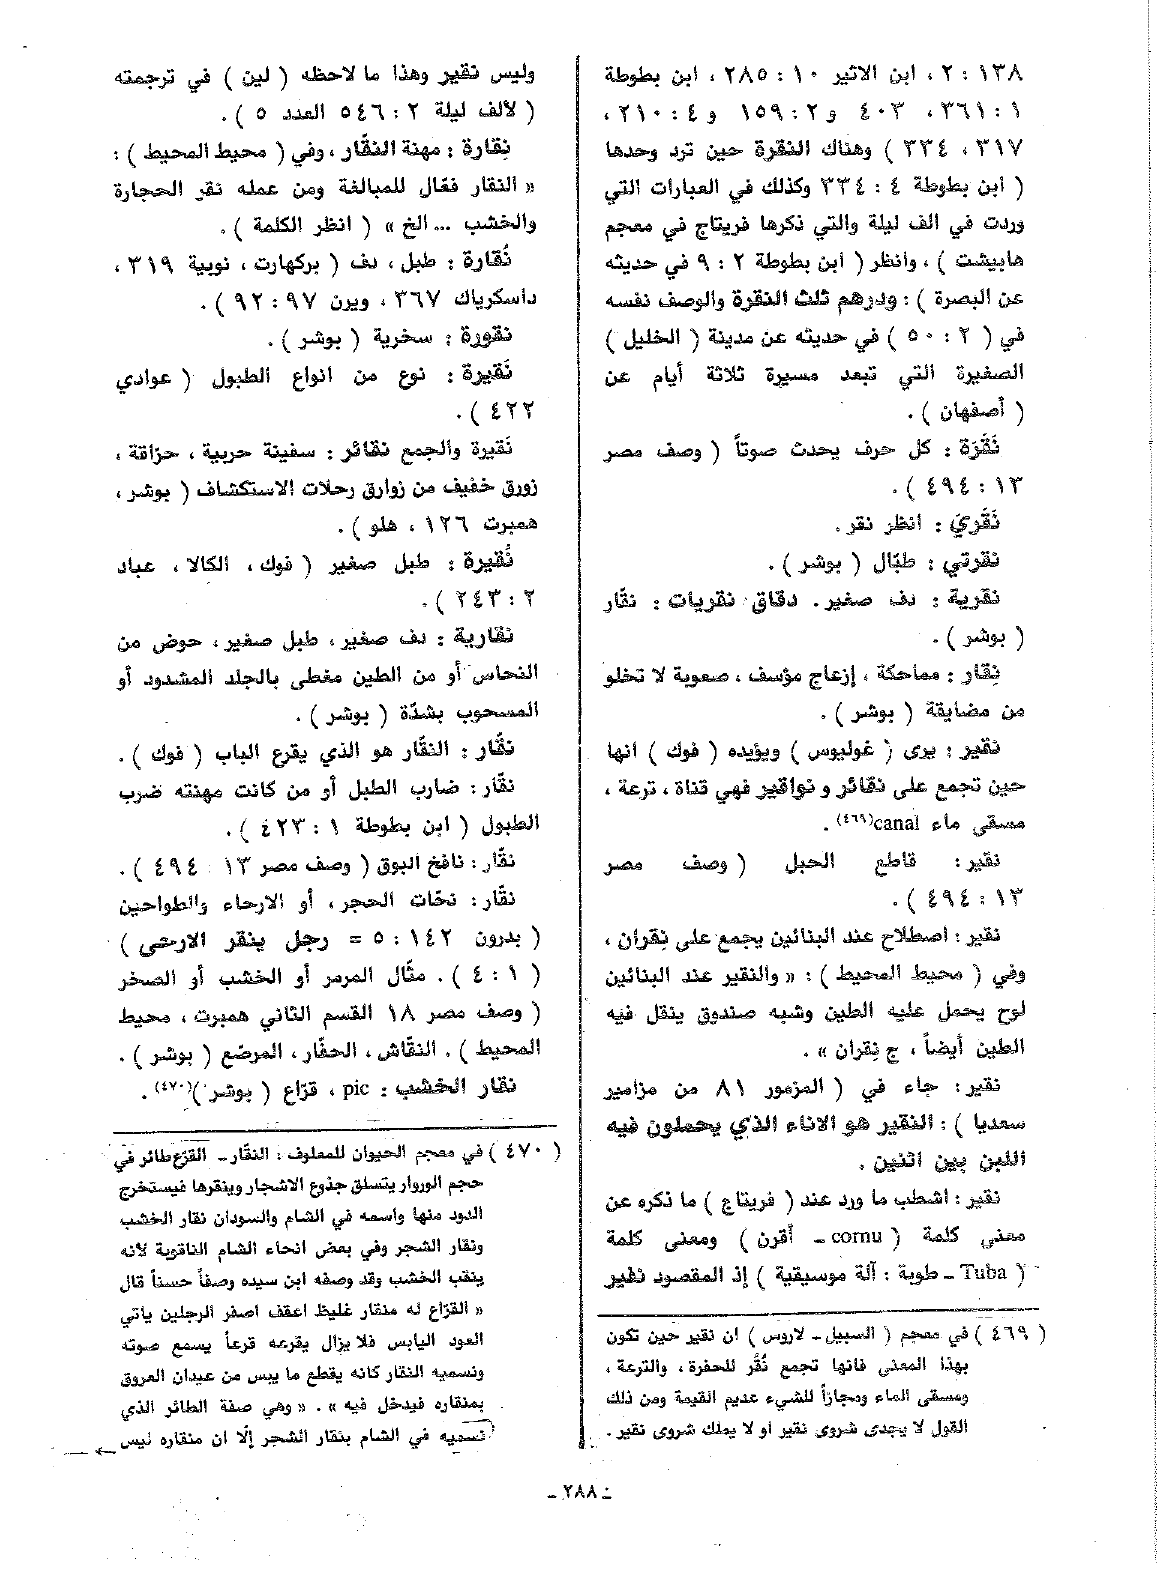 ١٣٨ : ٢ ، ابن الاثير ١٠ : ٢٨٥ ، ابن بطوطة
١ : ٣٦١ ، ٤٠٣ و ٢ : ١٥٩ و ٤ : ٢١٠ ،
٣١٧ ، ٣٣٤ ) وهناك النقرة حين ترد وحدها
( ابن بطوطة ٤ : ٣٣٤ وكذلك في العبارات التي
وردت في الف ليلة والتي ذكرها فريتاج في معجم
هابيشت ) ، وانظر ( ابن بطوطة ٢ : ٩ في حديثه
عن البصرة ) : ودرهم ثلث النقرة والوصف نفسه
في ( ٢ : ٥٠ ) في حديثه عن مدينة ( الخليل )
الصغيرة التي تبعد مسيرة ثلاثة أيام عن
( أصفهان ) .
نَقَّرَة : كل حرف يحدث صوتاً ( وصف مصر
١٣ : ٤٩٤ ) .
نَقَّريّ : انظر نقر .
نقرتي : طبّال ( بوشر ) .
نقرية : دف صغير . دقاق نقريات : نقّار
( بوشر ) .
نِقار : مماحكة ، إزعاج مؤسف ، صعوبة لا تخلو
من مضايقة ( بوشر ) .
نقير : يرى ( غوليوس ) ويؤيده ( فوك ) انها
حين تجمع على نقائر و نواقير فهي قناة ، ترعة ،
مسقى ماء canal(٤٦٩) .
نقير : قاطع الحبل ( وصف مصر
١٣ : ٤٩٤ ) .
نقير : اصطلاح عند البنائين يجمع على نِقران ،
وفي ( محيط المحيط ) : « والنقير عند البنائين
لوح يحمل عليه الطين وشبه صندوق ينقل فيه
الطين أيضاً ، ج نِقران » .
نقير : جاء في ( المزمور ٨١ من مزامير
سعديا ) : النقير هو الاناء الذي يحملون فيه
اللبن بين اثنين .
نقير : اشطب ما ورد عند ( فريتاج ) ما ذكره عن
معنى كلمة ( cornu ـ أقرن ) ومعنى كلمة
( Tuba ـ طوبة : آلة موسيقية ) إذ المقصود نفير
( ٤٦٩ ) في معجم ( السبيل ـ لاروس ) ان نقير حين تكون
بهذا المعنى فانها تجمع نُقُر للحفرة ، والترعة ،
ومسقى الماء ومجازاً للشيء عديم القيمة ومن ذلك
القول لا يجدى شروى نقير او لا يملك شروى نقير .
وليس نقير وهذا ما لاحظه ( لين ) في ترجمته
( لألف ليلة ٢ : ٥٤٦ العدد ٥ ) .
نِقارة : مهنة النقّار ، وفي ( محيط المحيط ) :
« النقار فعّال للمبالغة ومن عمله نقر الحجارة
والخشب ... الخ » ( انظر الكلمة ) .
نُقارة : طبل ، دف ( بركهارت ، نوبية ٣١٩ ،
داسكرياك ٣٦٧ ، ويرن ٩٧ : ٩٢ ) .
نقورة : سخرية ( بوشر ) .
نَقيرة : نوع من انواع الطبول ( عوادي
٤٢٢ ) .
نَقيرة والجمع نقائر : سفينة حربية ، حرّاقة ،
زورق خفيف من زوارق رحلات الاستكشاف ( بوشر ،
همبرت ١٢٦ ، هلو ) .
نُقيرة : طبل صغير ( فوك ، الكالا ، عباد
٢ : ٢٤٣ ) .
نقارية : دف صغير ، طبل صغير ، حوض من
النحاس أو من الطين مغطى بالجلد المشدود أو
المسحوب بشدّة ( بوشر ) .
نقّار : النقّار هو الذي يقرع الباب ( فوك ) .
نقّار : ضارب الطبل أو من كانت مهنته ضرب
الطبول ( ابن بطوطة ١ : ٤٢٣ ) .
نقّار : نافخ البوق ( وصف مصر ١٣ : ٤٩٤ ) .
نقّار : نحّات الحجر ، أو الارحاء والطواحين
( بدرون ١٤٢ : ٥ = رجل ينقر الارحى )
( ١ : ٤ ) . مثّال المرمر أو الخشب أو الصخر
( وصف مصر ١٨ القسم الثاني همبرت ، محيط
المحيط ) . النقّاش ، الحفّار ، المرصّع ( بوشر ) .
نقار الخشب : pic ، قرّاع ( بوشر )(٤٧٠) .
( ٤٧٠ ) في معجم الحيوان للمعلوف : النقّار ـ القرّع طائر في
حجم الوروار يتسلق جذوع الاشجار وينقرها فيستخرج
الدود منها واسمه في الشام والسودان نقار الخشب
ونقار الشجر وفي بعض انحاء الشام الناقوبة لأنه
ينقب الخشب وقد وصفه ابن سيده وصفاً حسناً قال
« القرّاع له منقار غليظ اعقف اصفر الرجلين ياتي
العود اليابس فلا يزال يقرعه قرعاً يسمع صوته
ونسميه النقار كانه يقطع ما يبس من عيدان العروق
بمنقاره فيدخل فيه » . « وهي صفة الطائر الذي
نسميه في الشام بنقار الشجر إلّا ان منقاره ليس
ـ ٢٨٨ ـ